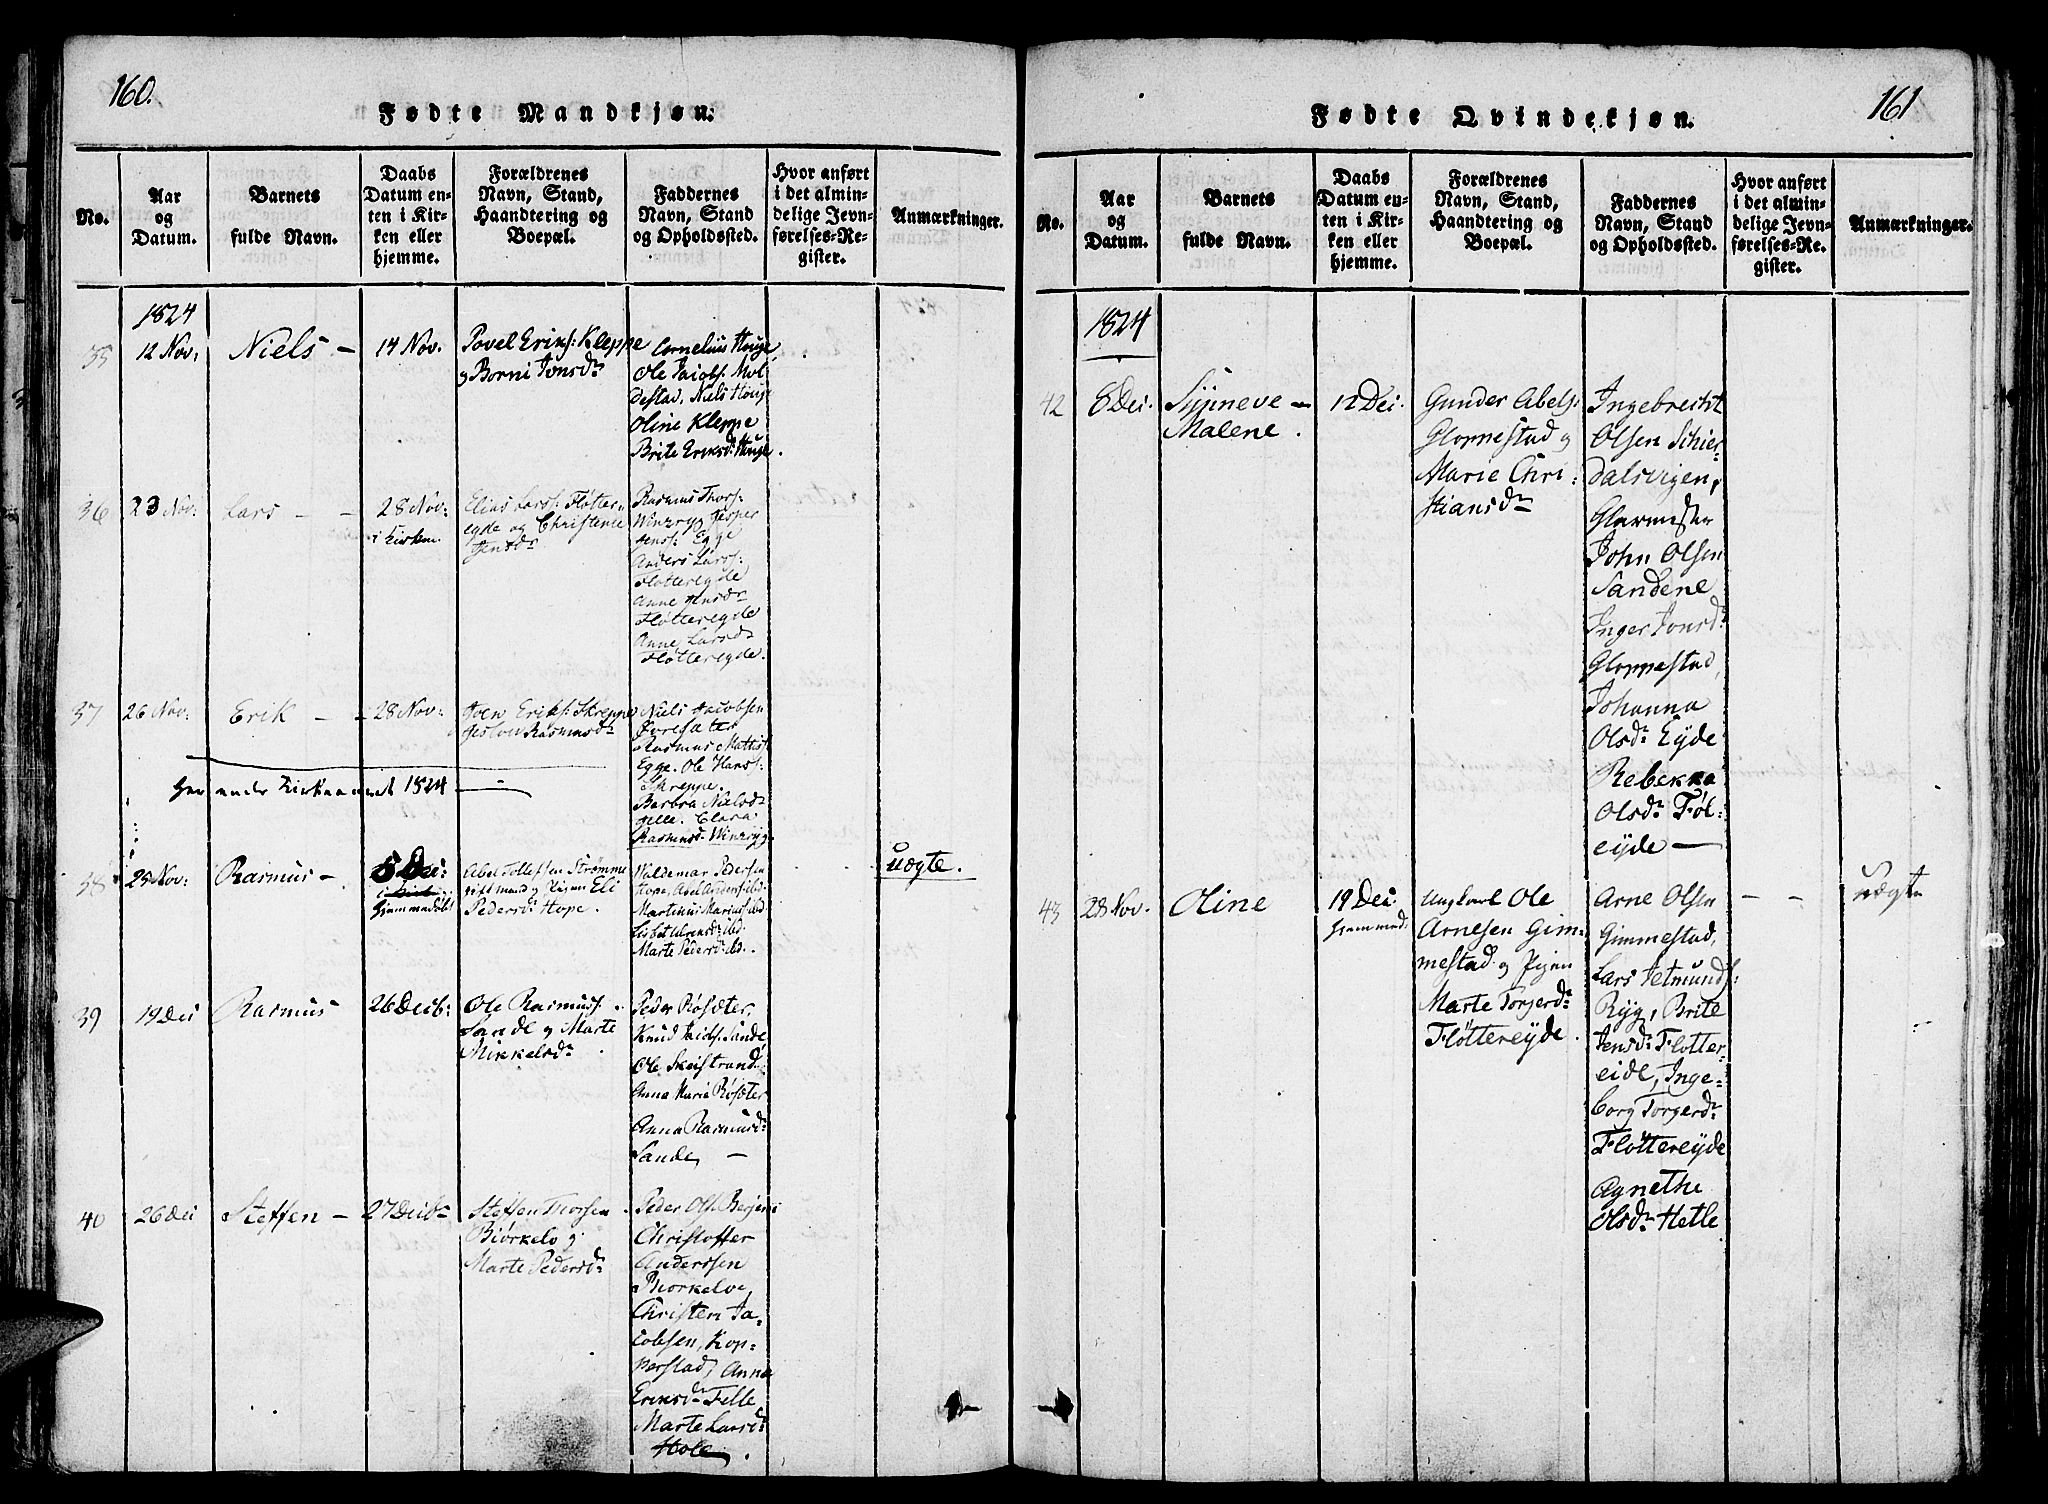 160.
Fødte Mandkjøn.
No.
Aar
og
Datum.
Barnets
fulde Navn.
Daabs
Datum en-
ten i Kir-
ken eller
hjemme.
Forældrenes
Navn, Stand,
Haandtering og
Boepæl.
Faddernes
Navn, Stand
og Opholdssted.
Hvor anført
i det almin-
delige Jevn-
førelses-Re-
gister.
Anmærkninger.
1824
35
12 Nov:
Niels -
14 Nov.
Povel Eriks: Kleppe
og Borni Jonsdr
Cornelius Houge,
Ole Jacobs: Mol
destad, Niels Houge
Oline Kleppe
Brite Eriksd: Houge.
36
23 Nov:
Lars - -
28 Nov:
i Kirken.
Elias Larss: Fløtter
egde og Christense
Jensdr
Rasmus Thors:
Winzryg Jesper
Jenss: Egge
Anders Larss:
Flötteregde
Anne Jensdr
Fløtteregde
Anne Larsd:
Fløtteregde.
37
26 Nov:
Erik - -
28 Nov:
Iven Eriks: Skreppe
Rasmusdr
Niels Jacobsen
Rasmus Mattiss:
Egge. Ole Hanss:
Skreppe.
Barbra Nielsdr
Clara
Rasmusd: Winzryg
Her ender Kirkeaaret 1824 -
38
29 Nov:
Rasmus -
5 Dec:
i Kirk
Hjemmedøbt
Abel Tollefsen Strømme
gift mand og Pigen Eli
Pedersdr Hope.
Waldemar Pedersen
Hope, Abel Anders: ibd
Martinus Marius: ibd
Lisbet ibd:
Marte Pedersd: ibd.
uægte.
39
19 Dec
Rasmus
26 Decb:
Ole Rasmuss:
Sande og Marte
Mikkelsdr
Peder Røsæter,
Knud Jacobs: Sande
Ole Skeistrand
Anna Maria Røsæter
Anna Rasmusd:
Sande, -
40
26 Dec
Steffen -
27 Decbr
Steffen Thorsen
Biørkelo og
Marte Pedersdr
Peder Ols:
Christoffer
Anderssen
Christen Ja-
cobsen, Kop-
perstad, Anna
Eriksdr Felle
Marte Larsd:
Hole.
161
Fødte Qvindekjøn.
No.
Aar
og
Datum.
Barnets
fulde Navn.
Daabs
Datum en-
ten i Kir-
ken eller
hjemme.
Forældrenes
Navn, Stand,
Haandtering og
Boepæl.
Faddernes
Navn, Stand
og Opholdssted.
Hvor anført
i det almin-
delige Jevn-
førelses-Re-
gister.
Anmærkninger.
1824
42
8 Dec.
Synneve -
Malene.
12 Dec.
Gunder Abels:
Gloppestad og
Marie Chri-
stiansdr
Ingebrecht
Olsen Schier-
dalsvigen,
Glarmester
John Olsen
Sandene
Inger Jonsdr
Gloppestad,
Johanna
Olsdr Eyde
Rebekka
Olsdr Føl-
eyde -
43
28 Nov.
Oline
19 Dec
Hjemmed.
Ungkarl Ole
Arnesen Gim-
mestad og Pigen
Marte Torgerdr
Fløttereyde.
Arne Olsen
Gimmestad,
Lars Jetmunds:
Ryg, Brite
Jensdr Fløtter-
eide, Inge-
borg Torgerdr
Fløttereyde
Agnethe
Olsdr Hetle
- -
uægte